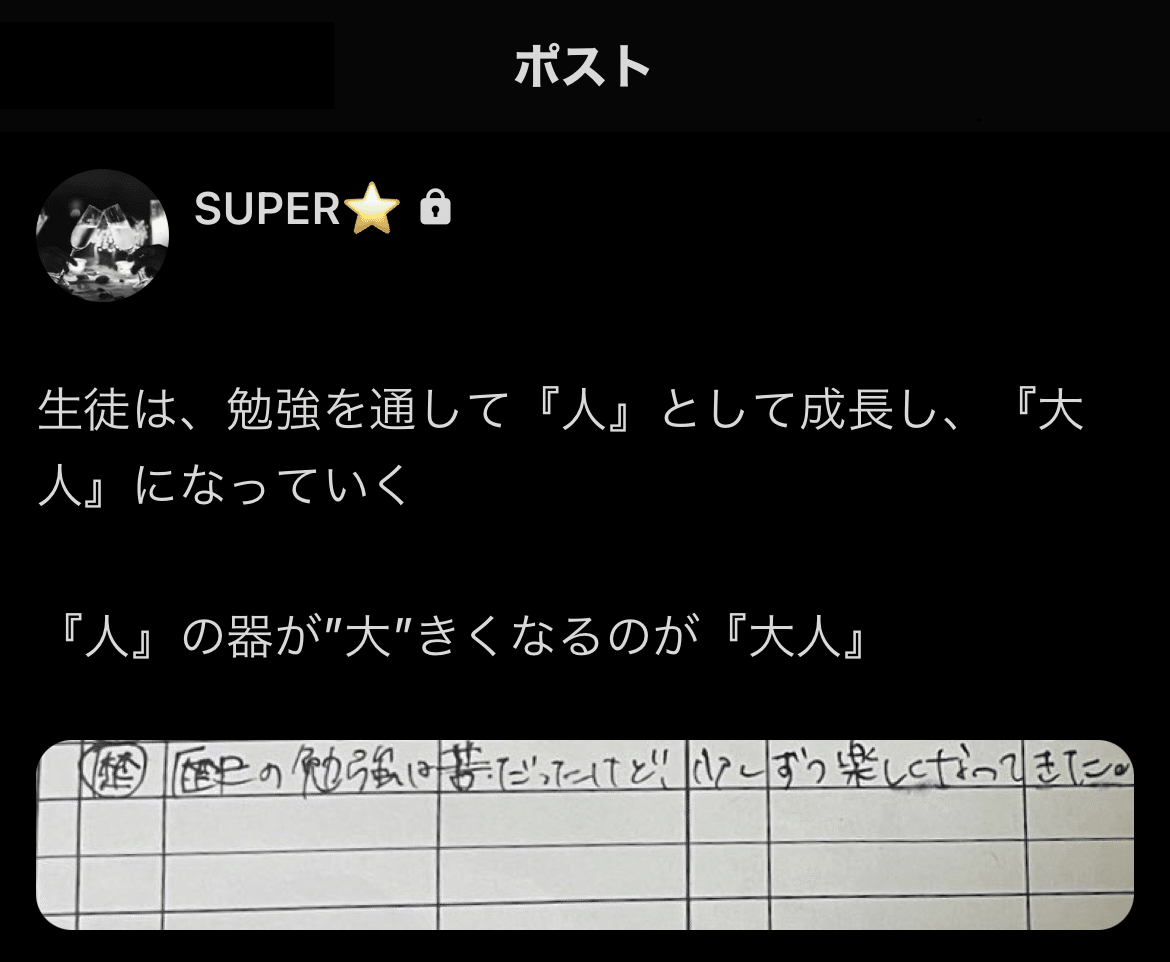 ポスト
SUPER⭐🔒
生徒は、勉強を通して『人』として成長し、『大
人』になっていく
『人』の器が”大”きくなるのが『大人』
歴 歴史の勉強は苦だったけど、少しずつ楽しくなってきた。